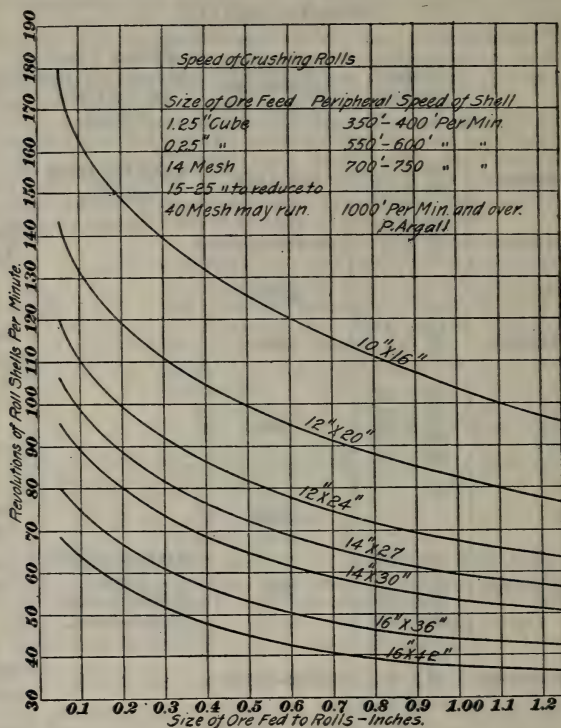 Speed of Crushing Rolls
Size of Ore Feed Peripheral Speed of Shell
1.25" Cube 350'-400' Per Min.
0.25" " 550'-600' " "
14 Mesh 700'-750 " "
15-25 " to reduce to
40 Mesh may run. 1000' Per Min. and over.
P. Argall
Revolutions of Roll Shells Per Minute.
190
180
170
160
150
140
130
120
110
100
90
80
70
60
50
40
30
10"X16"
12"X20"
12"X24"
14"X27
14"X30"
16"X36"
16"X42"
0.1 0.2 0.3 0.4 0.5 0.6 0.7 0.8 0.9 1.00 1.1 1.2
Size of Ore Fed to Rolls - Inches.